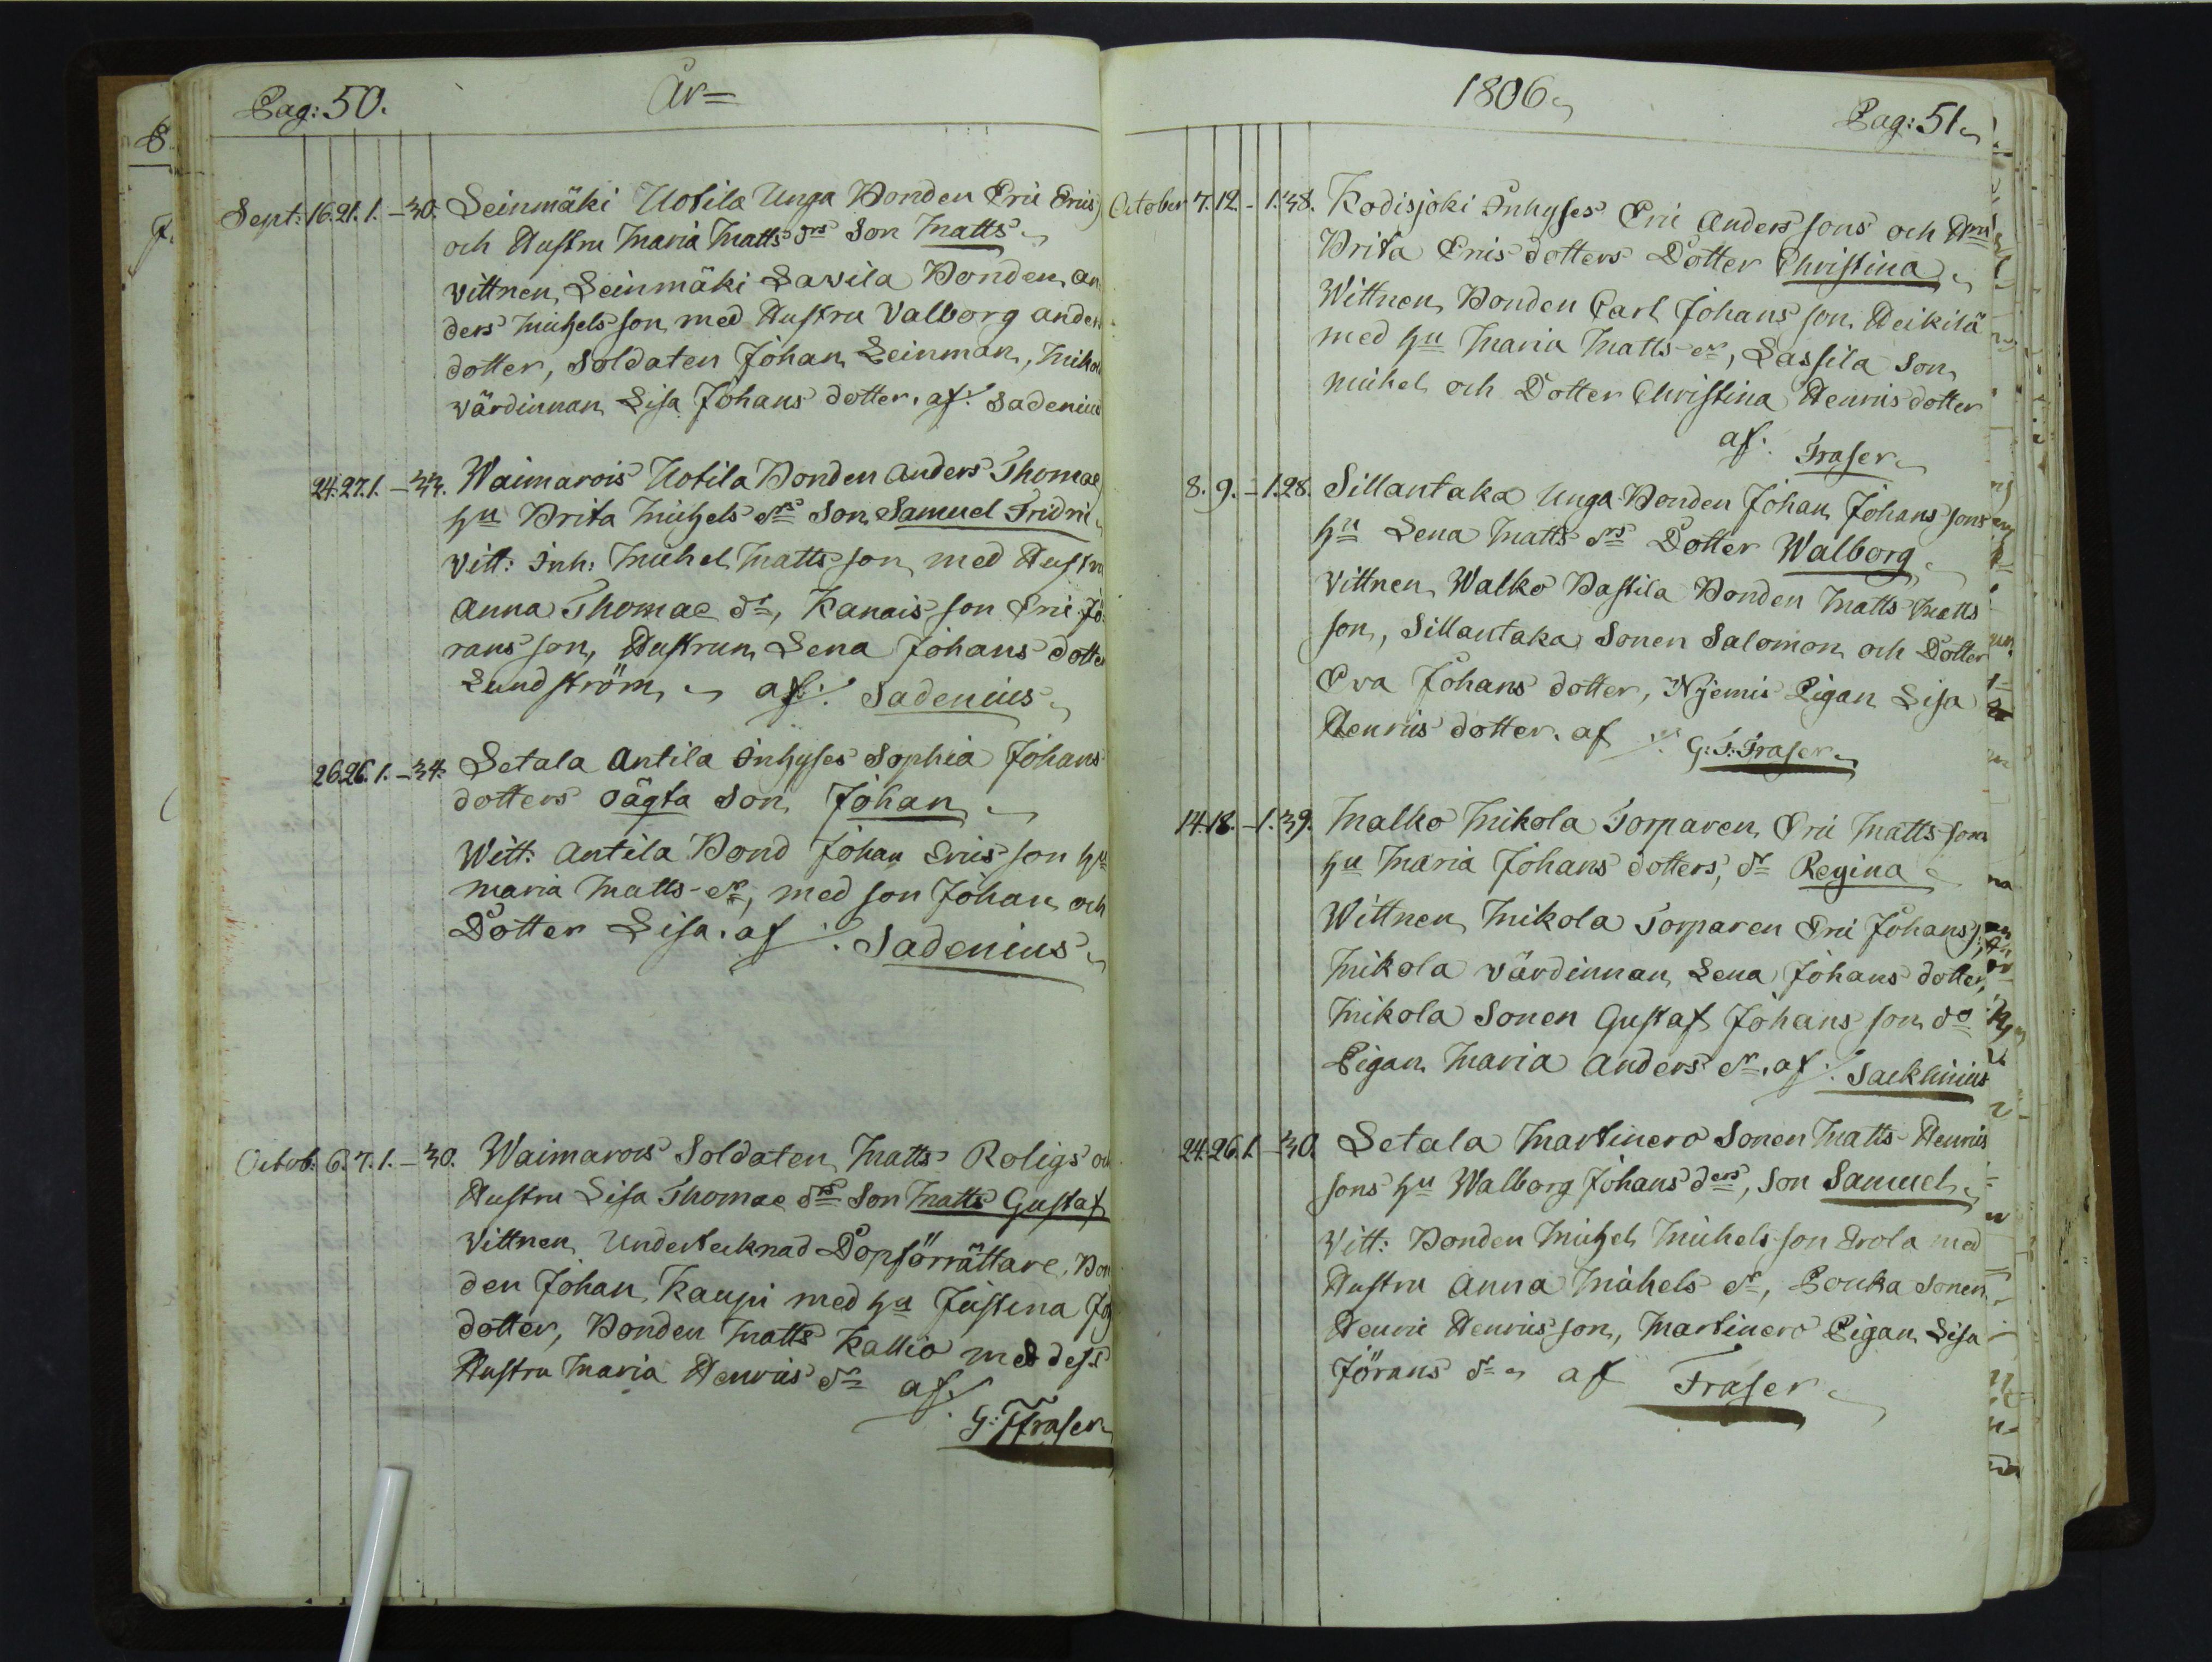 Pag: 50. År=
Sept: 16. 21. 1. - 30. Leinmäki Uotila Unga Bonden Eric Erics
och Hustru Maria Matts drs Son Matts
Vittnen, Leinmäki Lawila Bonden, An
ders Michelsson med Hustru Valborg anders
dotter, Soldaten Johan Leinman, Mikola
värdinnan Lisa Johans dotter. af: Sadenius
24. 27. 1. - 33. Waimarois Uotila Bonden Anders Thomae
hu Brita Michels drs Son Samuel Fridric
Vitt: Inh: Michel Mattsson med Hustru
Anna Thomae dr, Kanais son Eric Jö
ransson, Hustrun Lena Johans dotter
Lundström, af: Sadenius
26. 26. 1. - 34. Setala Antila Inhyses Sophia Johans
dotters oägta Son Johan
Witt. Antila Bond Johan Ericsson hu
Maria Matts dr, med son Johan och
Dotter Lisa. af: Sadenius
Octob: 6. 7. 1. - 30. Waimarois Soldaten Matts Roligs och
Hustru Lisa Thomae drs Son Matts Gustaf
Vittnen Undertecknad Dopförrättare, Bon
den Johan Kaupi med hu Justina Joh
dotter, Bonden Matts Kallio med dess
Hustru Maria Henrics dr af:
G: F Fraser
1806 Pag: 51
October 7. 12. - 1. 38. Kodisjoki Inhyses Eric Anderssons och Hru
Brita Erics dotters Dotter Christina
Wittnen Bonden Carl Johansson Heikilä
med hu Maria Matts dr, Lassila Son
Michel och Dotter Christina Henrics dotter
af: Fraser
8. 9. - 1. 28. Sillantaka Unga Bonden Johan Johanssons
hu Lena Matts drs Dotter Walborg
Vittnen Walko Pastila Bonden Matts Matts
son, Sillantaka Sonen Salomon och Dotter
Eva Johans dotter, Njemis Pigan Lisa
Henrics dotter. af: G: F: Fraser
14. 18. - 1. 39. Malko Mikola Torparen Eric Mattssons
hu Maria Johans dotters, dr Regina
Wittnen Mikola Torparen Eric Johanss:
Mikola värdinnan Lena Johans dotter,
Mikola Sonen Gustaf Johansson do
Pigan Maria Anders dr. af: Sacklinius
24. 26. 1. - 30. Setala Martinero Sonen Matts Henrics
sons hu Walborg Johans ders, Son Samuel
Vitt: Bonden Michel Michelsson Erola med
Hustru Anna Michels dr, Pouka Sonen
Henric Henricsson, Martinero Pigan Lisa
Jörans dr af Fraser